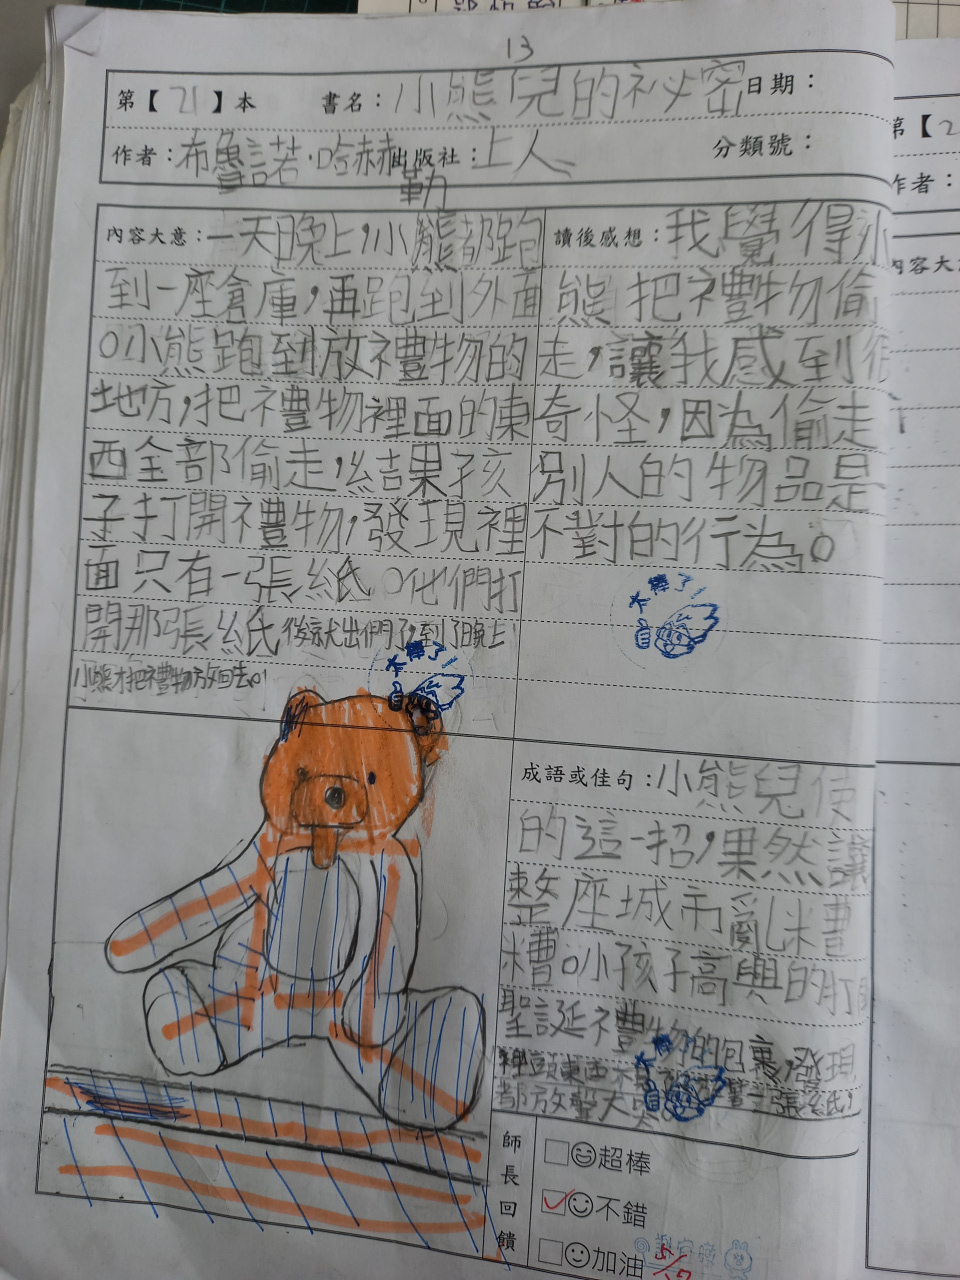 13
第【21】本 書名：小熊兒的祕密 日期：
作者：布魯諾·哈赫勒 出版社：上人 分類號：
內容大意：一天晚上，小熊都跑
到一座倉庫，再跑到外面
。小熊跑到放禮物的
地方，把禮物裡面的東
西全部偷走，結果孩
子打開禮物，發現裡
面只有一張紙。他們打
開那張紙後就出們了，到了晚上
小熊才把禮物放回去。
讀後感想：我覺得小
熊把禮物偷
走，讓我感到很
奇怪，因為偷走
別人的物品是
不對的行為。
太棒了！
太棒了！
成語或佳句：小熊兒使
的這一招，果然讓
整座城市亂糟
糟。小孩子高興的打開
聖誕禮物的包裹，發現
裡頭東西不
都放聖大 一張紙，
太棒了
師長回饋
超棒
不錯
加油
5/17
第【2
作者：
內容大